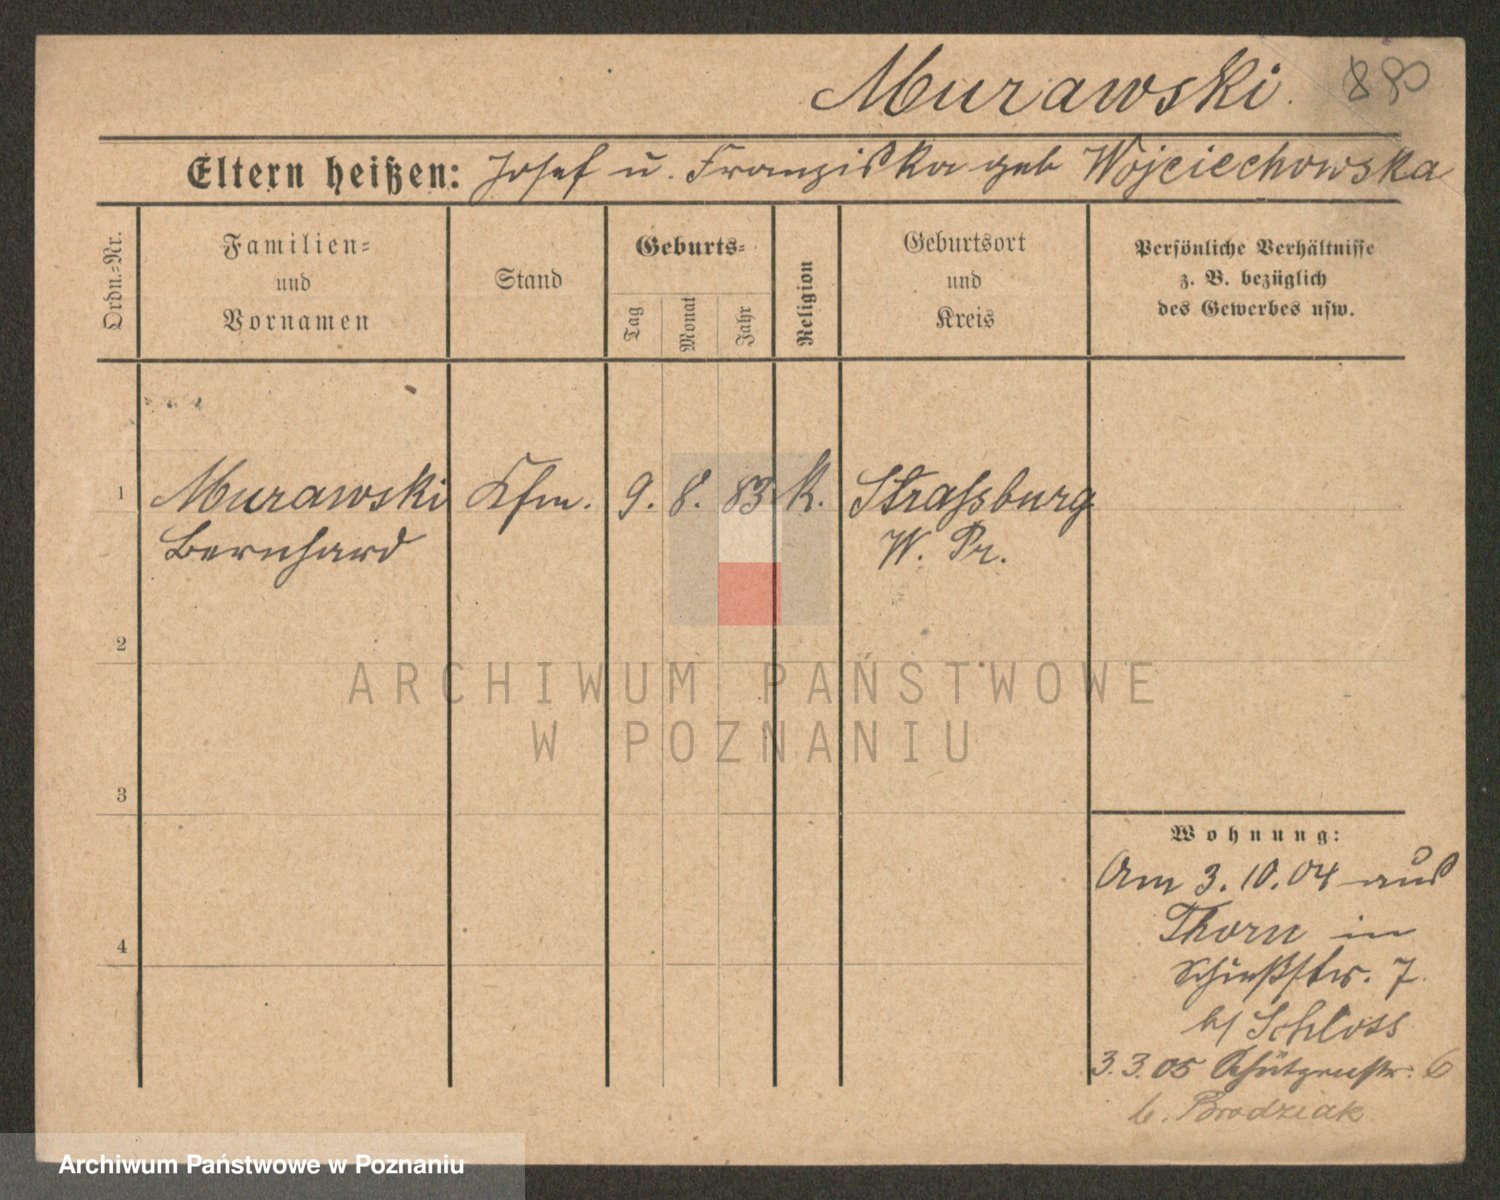 Murawski.
880
Eltern heißen: Josef u. Franziska geb Wojciechowska
Ordn.-Nr.
Familien-
und
Vornamen
Stand
Geburts-
Tag
Monat
Jahr
Religion
Geburtsort
und
Kreis
Persönliche Verhältnisse
z. B. bezüglich
des Gewerbes usw.
1 Murawski Kfm. 9. 8. 83. K. Strassburg
Bernhard W. Pr.
2
3
4
Wohnung:
Am 3.10.04 aus
Thorn in
Schießstr. 7.
b/ Schloss
3.3.05 Schützenstr. 6
b. Brodziak
ARCHIWUM PAŃSTWOWE
W POZNANIU
Archiwum Państwowe w Poznaniu